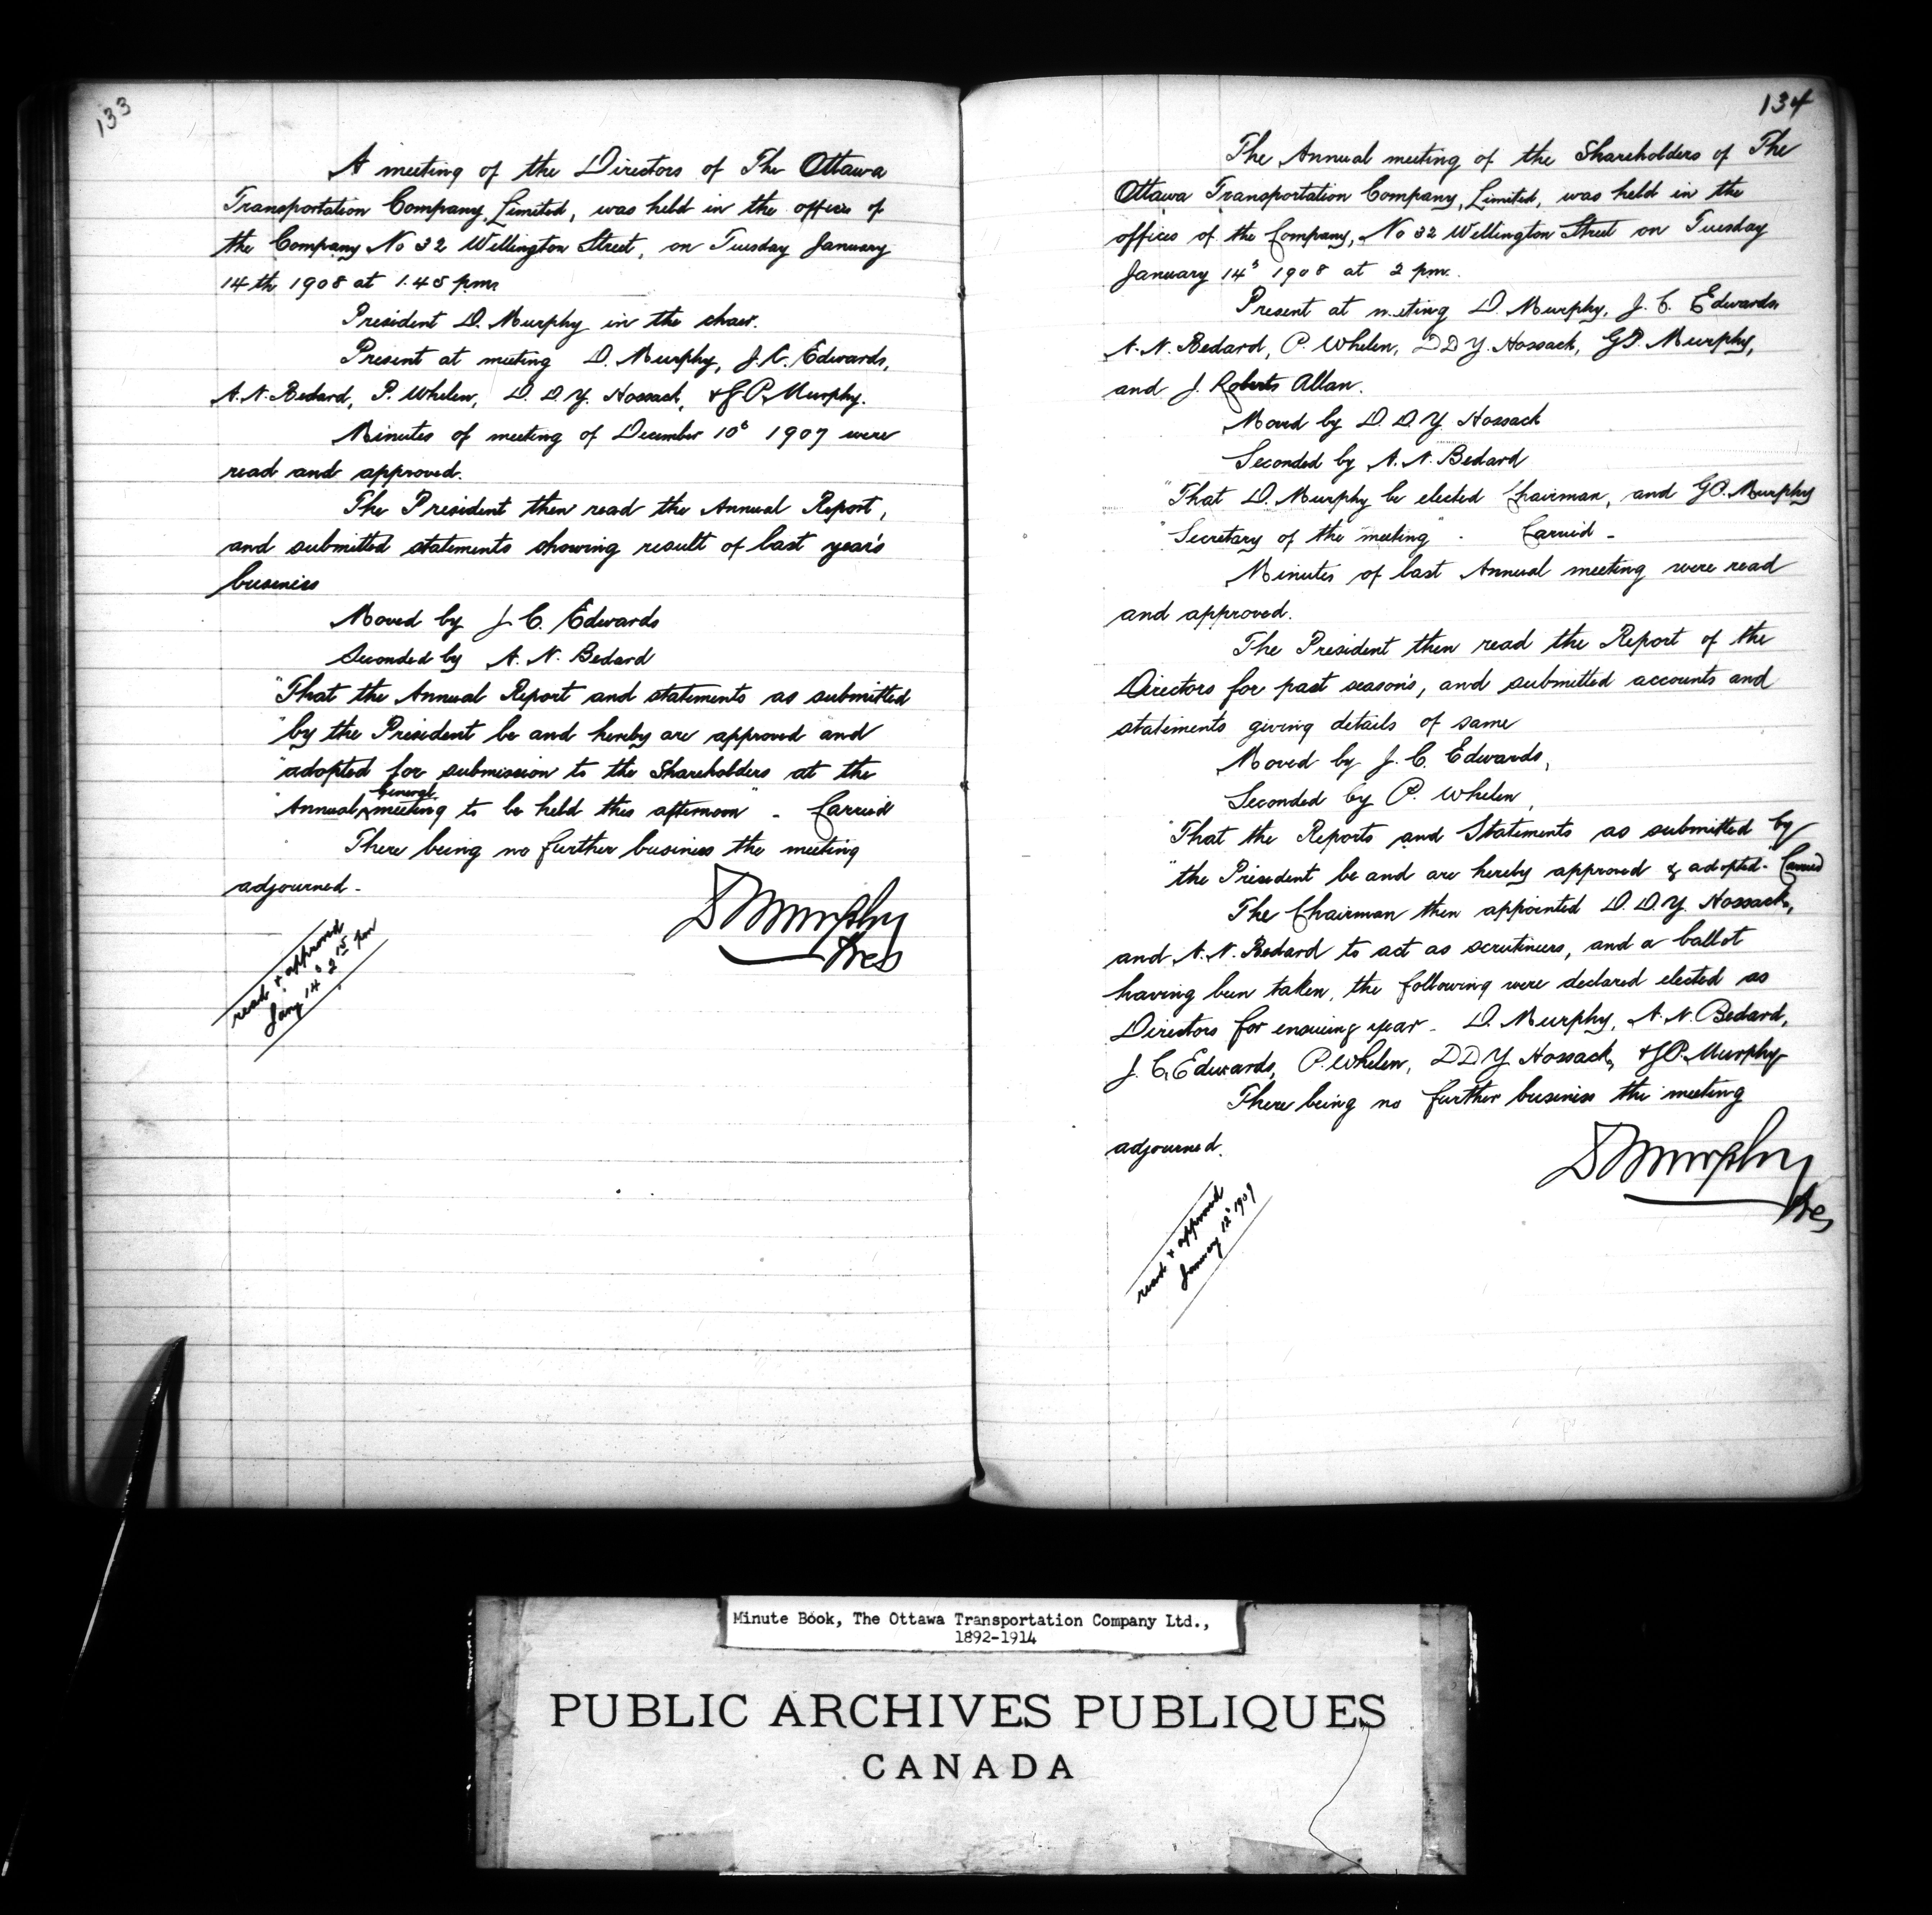 133
A meeting of the Directors of The Ottawa
Transportation Company, Limited, was held in the offices of
the Company No 32 Wellington Street, on Tuesday January
14th 1908 at 1.45 p.m.
President D. Murphy in the chair.
Present at meeting D. Murphy, J. C. Edwards,
A. N. Bedard, P. Whelen, D. D. Y. Hossack, & G P. Murphy.
Minutes of meeting of December 10th 1907 were
read and approved.
The President then read the Annual Report,
and submitted statements showing result of last year's
business
Moved by J. C. Edwards
Seconded by A. N. Bedard
"That the Annual Report and statements as submitted
"by the President be and hereby are approved and
"adopted for submission to the Shareholders at the
General
"Annual meeting to be held this afternoon" - Carried
There being no further business the meeting
adjourned -
D Murphy
Pres
read & approved
Jany 14th 2 15 pm
134
The Annual meeting of the Shareholders of The
Ottawa Transportation Company, Limited, was held in the
offices of the Company, No 32 Wellington Street on Tuesday
January 14th 1908 at 2 pm.
Present at meeting D. Murphy, J. C. Edwards,
A. N. Bedard, P. Whelen, D D Y. Hossack, G P. Murphy,
and J. Roberts Allan.
Moved by D. D. Y. Hossack
Seconded by A. N. Bedard
"That D. Murphy be elected Chairman, and G P. Murphy
"Secretary of the meeting" - Carried -
Minutes of last Annual meeting were read
and approved.
The President then read the Report of the
Directors for past season's, and submitted accounts and
statements giving details of same
Moved by J. C. Edwards,
Seconded by P. Whelen,
"That the Reports and Statements as submitted by
"the President be and are hereby approved & adopted-" Carried
The Chairman then appointed D. D. Y. Hossack,
and A. N. Bedard to act as scrutineers, and a ballot
having been taken, the following were declared elected as
Directors for ensuing year - D. Murphy, A. N. Bedard,
J. C. Edwards, P. Whelen, D D Y Hossack, & G P. Murphy-
There being no further business the meeting
adjourned.
D Murphy
Pres
read & approved
January 12th 1909
Minute Book, The Ottawa Transportation Company Ltd.,
1892-1914
PUBLIC ARCHIVES PUBLIQUES
CANADA